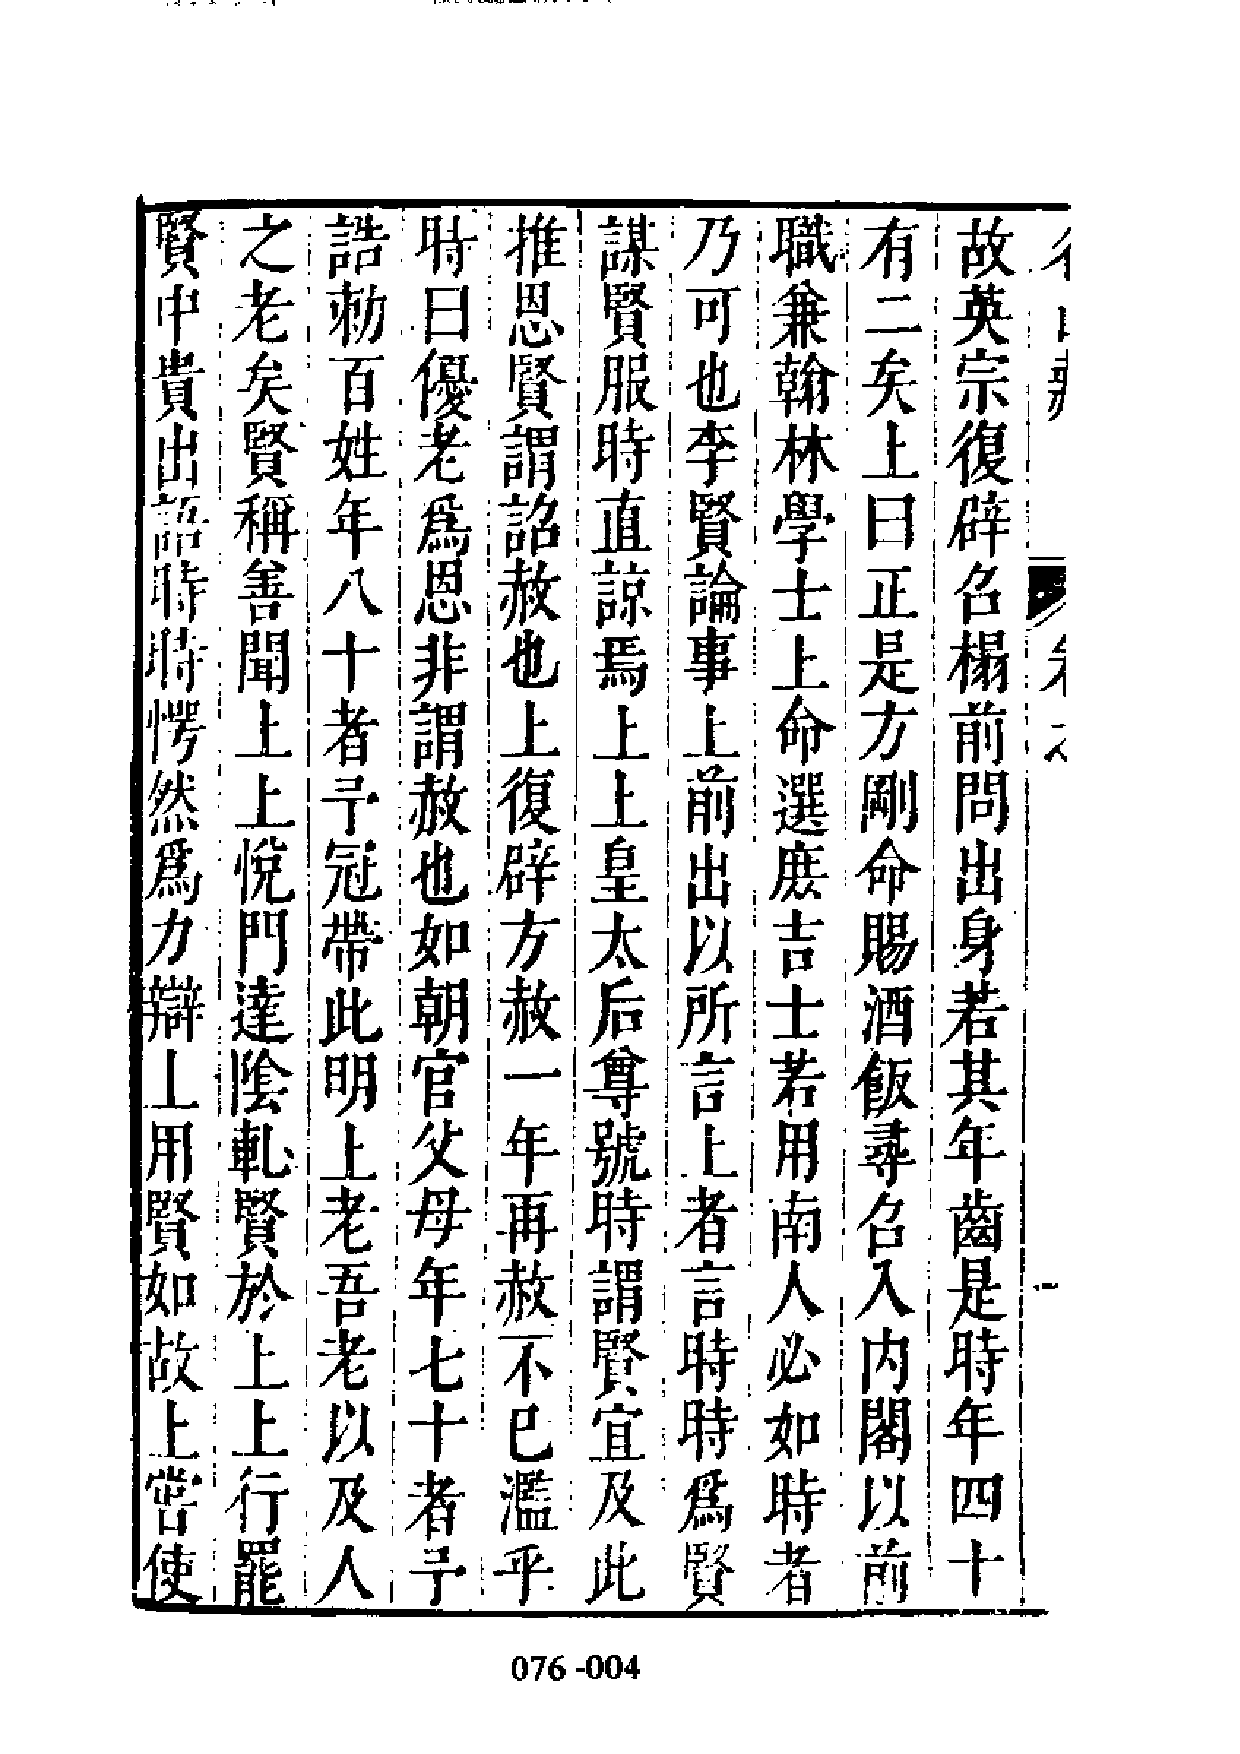 故英宗復辟召榻前問出身若其年齒是時年四十
有二矣上曰正是方剛命賜酒飯尋召入内閣以前
職兼翰林學士上命選庶吉士若用南人必如時者
乃可也李賢論事上前出以所言上者言時時爲賢
謀賢服時直諒焉上上皇太后尊號時謂賢宜及此
推恩賢謂詔赦也上復辟方赦一年再赦不已濫乎
時曰優老爲恩非謂赦也如朝官父母年七十者予
誥勑百姓年八十者予冠帶此明上老吾老以及人
之老矣賢稱善聞上上悅門達陰軋賢於上上行罷
賢中貴出語時時愕然爲力辯上用賢如故上嘗使
076-004